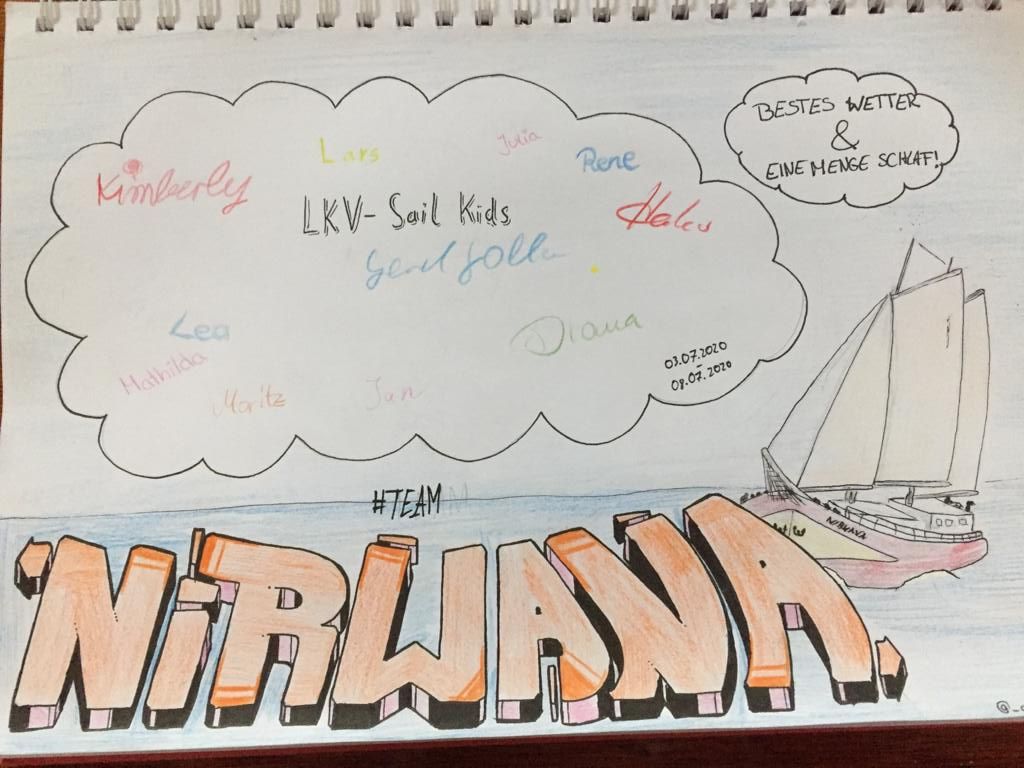 BESTES WETTER
&
EINE MENGE SCHLAF!
Kimberly
Lars
Julia
Rene
LKV - Sail Kids
Lea
Diana
Mathilda
Moritz
Jan
03.07.2020
-
08.07.2020
#TEAM
NiRWANA
NIRWANA